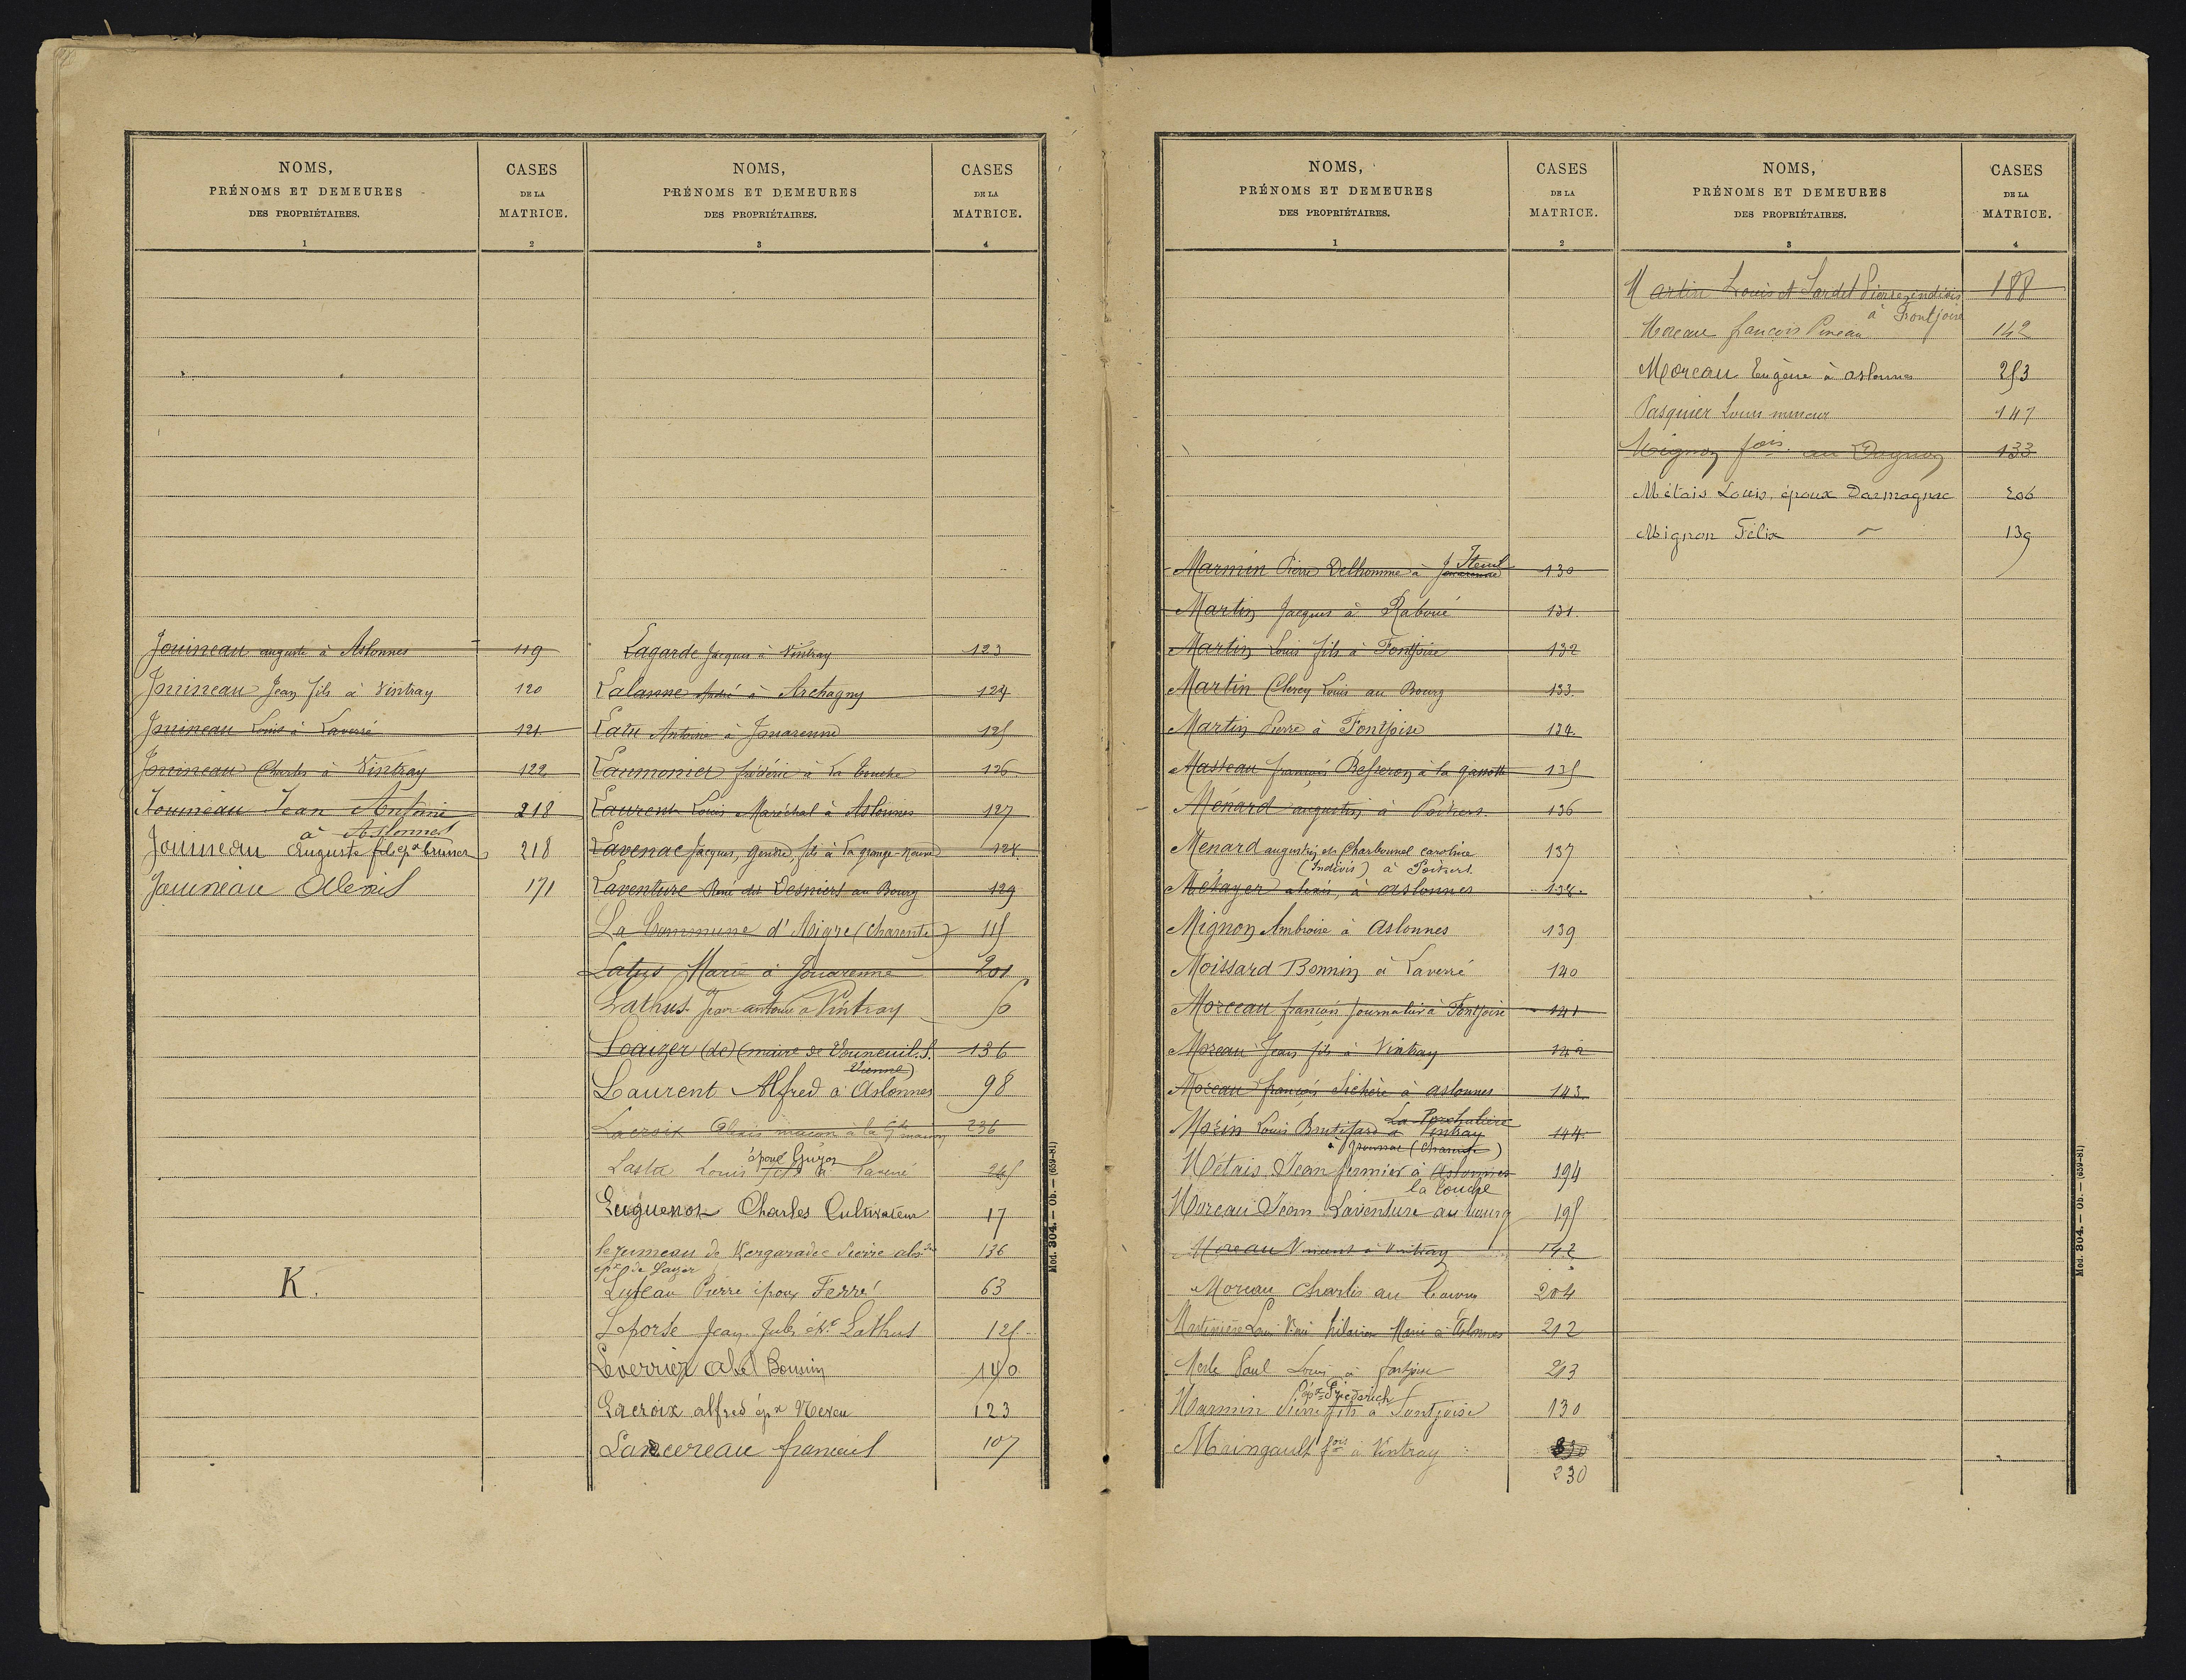 NOMS,
PRÉNOMS ET DEMEURES
DES PROPRIÉTAIRES.
1
CASES
DE LA
MATRICE.
2
NOMS,
PRÉNOMS ET DEMEURES
DES PROPRIÉTAIRES.
3
CASES
DE LA
MATRICE.
4
Jouineau auguste à Aslonnes 119
Jouineau Jean fils à Vintray 120
Jouineau Louis à Laverré 121
Jouineau Charles à Vintray 122
Jouineau Jean Antoine 218
à Aslonnes
Jouineau Auguste fils epx bruner 218
Jouineau Alexis 171
K.
Lagarde Jacques à Vintray 123
Lalanne André à Archagny 124
Latu Antoine à Jouarenne 125
Laumonier frédéric à la Touche 126
Laurent Louis Maréchal à Aslonnes 127
Lavenac Jacques, Gendre, fils à la grange-neuve 128
Laventure René des Desniers au Bourg 129
La Commune d'Aigre (charente) 115
Latus Marie à Jouarenne 201
Lathus Jean antoine à Vintray 6
Loaizer (de) (maire de Vouneuil. S.
Vienne) 136
Laurent Alfred à Aslonnes 98
Lacroix Alexis maçon à la Gde maison 236
époux Guyon
Lasta Louis fils à Laverré 245
Luguenot Charles Cultivateur 17
Lejumeau de Kergaradec Pierre 136
epx de Layer
Luteau Pierre époux Ferré 63
Laporte Jean Jules Lathus 125
Leverrier Abel Bonnin 140
Lacroix alfred épx Neveu 123
Lancereau françois 107
Mod. 304. — Ob. — (659-81)
NOMS,
PRÉNOMS ET DEMEURES
DES PROPRIÉTAIRES.
1
CASES
DE LA
MATRICE.
2
NOMS,
PRÉNOMS ET DEMEURES
DES PROPRIÉTAIRES.
3
CASES
DE LA
MATRICE.
4
Marmin Pierre Delhomme à Jouarenne Iteuil 130
Martin Jacques à Raboué 131
Martin Louis fils à Fontjoise 132
Martin Clercy Louis au Bourg 133
Martin Pierre à Fontjoise 134
Masteau françois Besseron à la garotte 135
Ménard augustin à Poitiers 136
Ménard augustin et Charbonnel caroline 137
(Indivis) à Poitiers
Métayer alexis, à aslonnes 138
Mignon Ambroise à Aslonnes 139
Moissard Bonnin à Laverré 140
Moreau françois Journalier à Fontjoise 141
Moreau Jean fils à Vintray 142
Moreau françois Sichère à aslonnes 143
La Porchalière
Morin Louis Brutifard à Vintray 144
à Jouarenne (Charente)
Métais Jean fermier à Aslonnes 194
la touche
Moreau Jean Laventure au bourg 195
Moreau Vincent à Vintray 142
Moreau Charles au bourg 204
Martinière Louis René hilarion Marie à Aslonnes 212
Merle Paul Louis à fontjoise 213
épx Friederich
Marmin Pierre fils à Fontjoise 130
Maingault fois à Vintray
230
Martin Louis et Sardet Pierre, indivis 188
à Fontjoise
Moreau françois Pineau 142
Moreau Eugène à aslonnes 253
Pasquier Louis mineur 147
Mignon fois au Dognon 133
Métais Louis, époux Darmagnac 206
Mignon Félix 139
Mod. 304. — Ob. — (659-81)